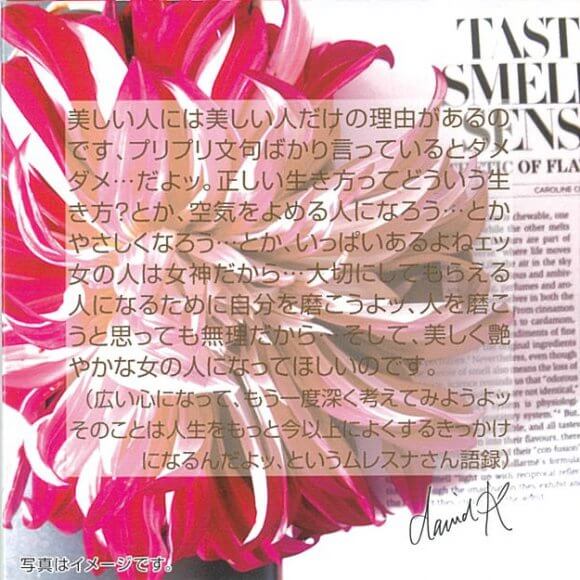 TAST
SMELL
SENS
TIC OF FLA
CAROLINE
chewable, one
the other melts
are part of
where life moves
in the sky
ous and ambiv-
fumes and aro-
lives in both the
From cinnamon
to cardamom,
of fine
original ingredients
Nevertheless, even though
of smell also means the loss
us that "odorous
are not identical,
in physiology
system."
and all tastes
their flavours. there
their "con fusion"
美しい人には美しい人だけの理由があるの
です、プリプリ文句ばかり言っているとダメ
ダメ‥だよッ。正しい生き方ってどういう生
き方?とか、空気をよめる人になろう…とか
やさしくなろう…とか、いっぱいあるよねエッ
女の人は女神だから…大切にしてもらえる
人になるために自分を磨こうよッ、人を磨こ
うと思っても無理だから…そして、美しく艶
やかな女の人になってほしいのです。
(広い心になって、もう一度深く考えてみようよッ
そのことは人生をもっと今以上によくするきっかけ
になるんだよッ、というムレスナさん語録)
david K
写真はイメージです。